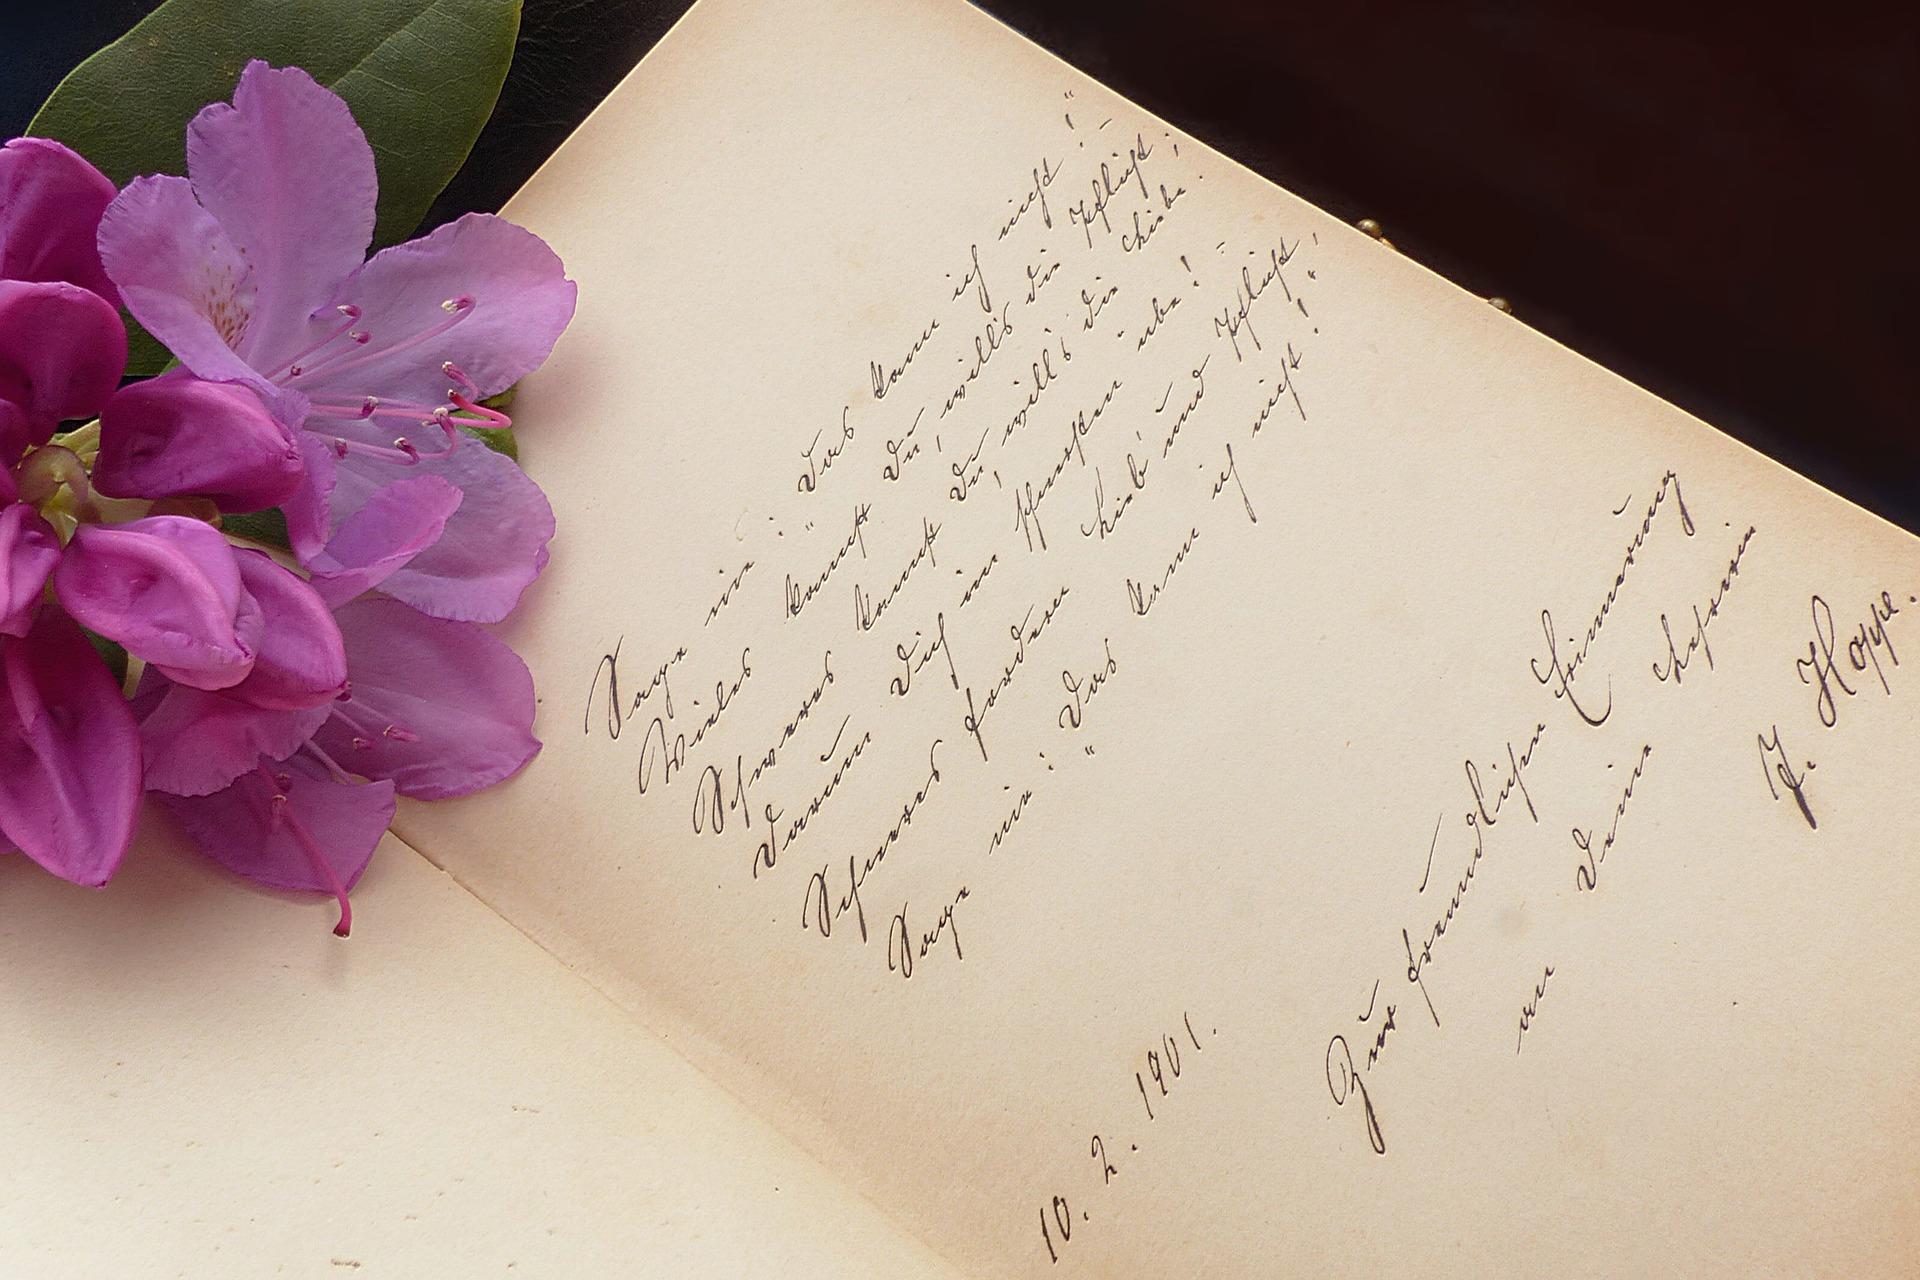 Sage nie: „Das kann ich nicht!“
Vieles kannst du, will's die Pflicht;
Schweres kannst du, will's die Liebe.
Darum dich im Schwersten übe!
Schweres fordern Lieb' und Pflicht,
Sage nie: „Das kann ich nicht!“
10. 2. 1901.
Zur freundlichen Erinnerung
an Deine Lehrerin
J. Hoppe.